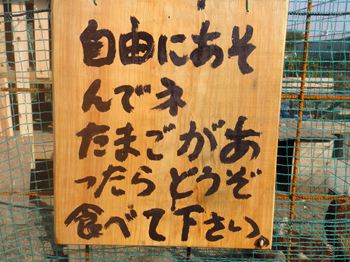 自由にあそ
んでネ
たまごがあ
ったらどうぞ
食べて下さい。